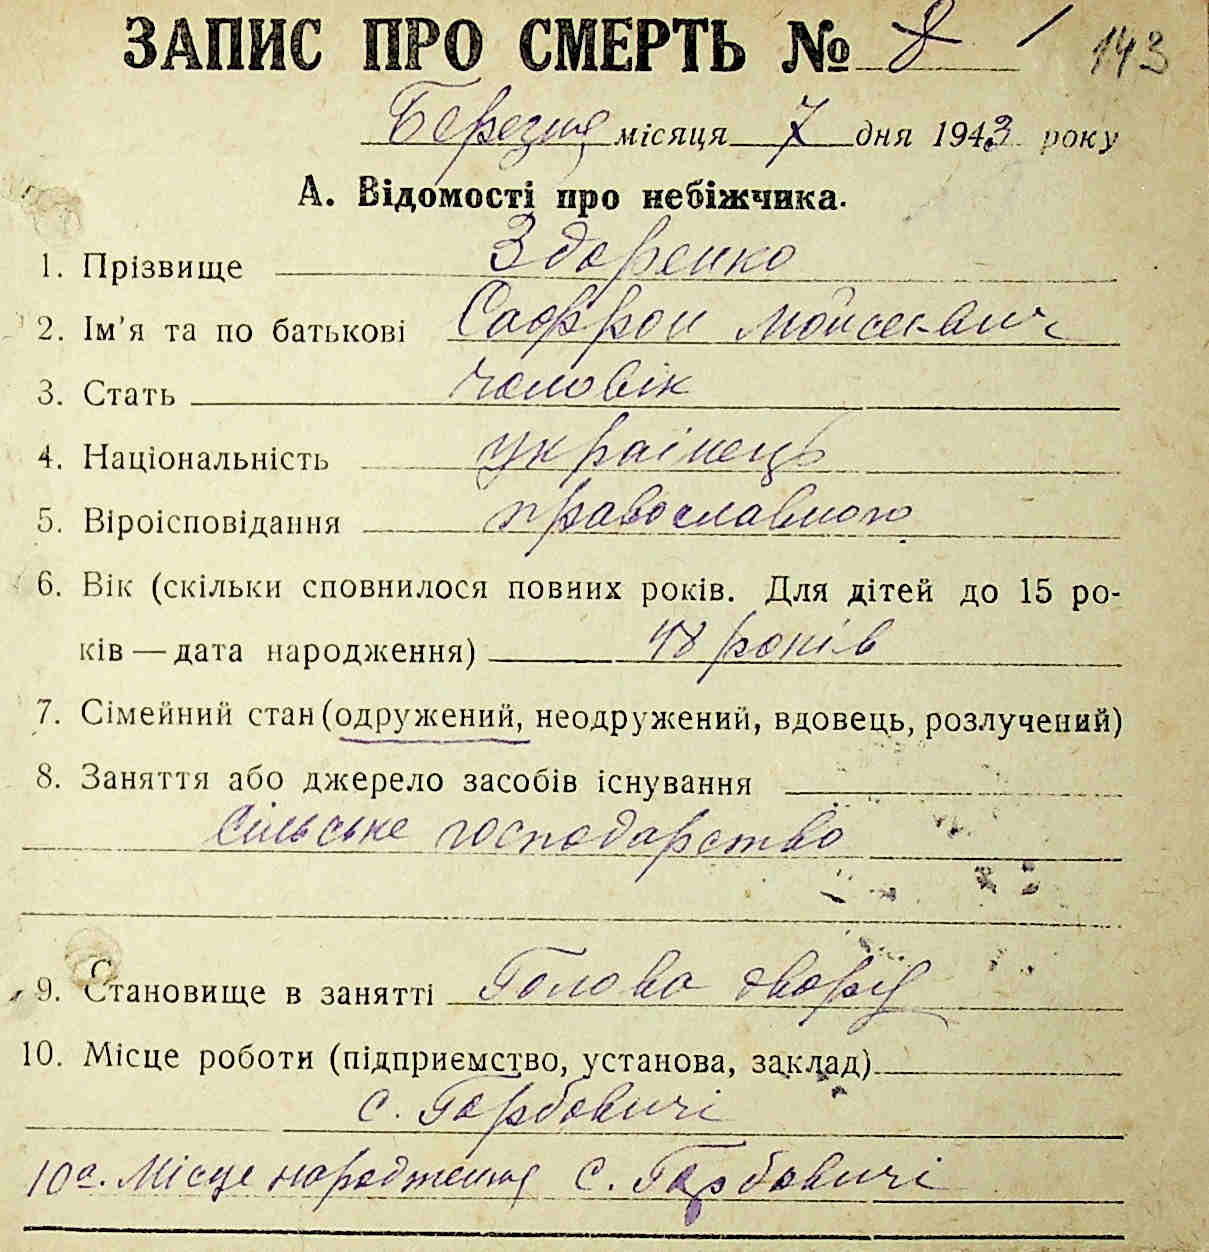 ЗАПИС ПРО СМЕРТЬ № 8 143
Березня місяця 7 дня 1943 року
А. Відомості про небіжчика.
1. Прізвище Здоренко
2. Ім'я та по батькові Софрон Мойсеєвич
3. Стать чоловік
4. Національність українець
5. Віроісповідання православного
6. Вік (скільки сповнилося повних років. Для дітей до 15 ро-
ків — дата народження) 48 років
7. Сімейний стан (одружений, неодружений, вдовець, розлучений)
8. Заняття або джерело засобів існування
Сільське господарство
9. Становище в занятті Голова двору
10. Місце роботи (підприємство, установа, заклад)
с. Горбовичі
10а. Місце народження с. Горбовичі